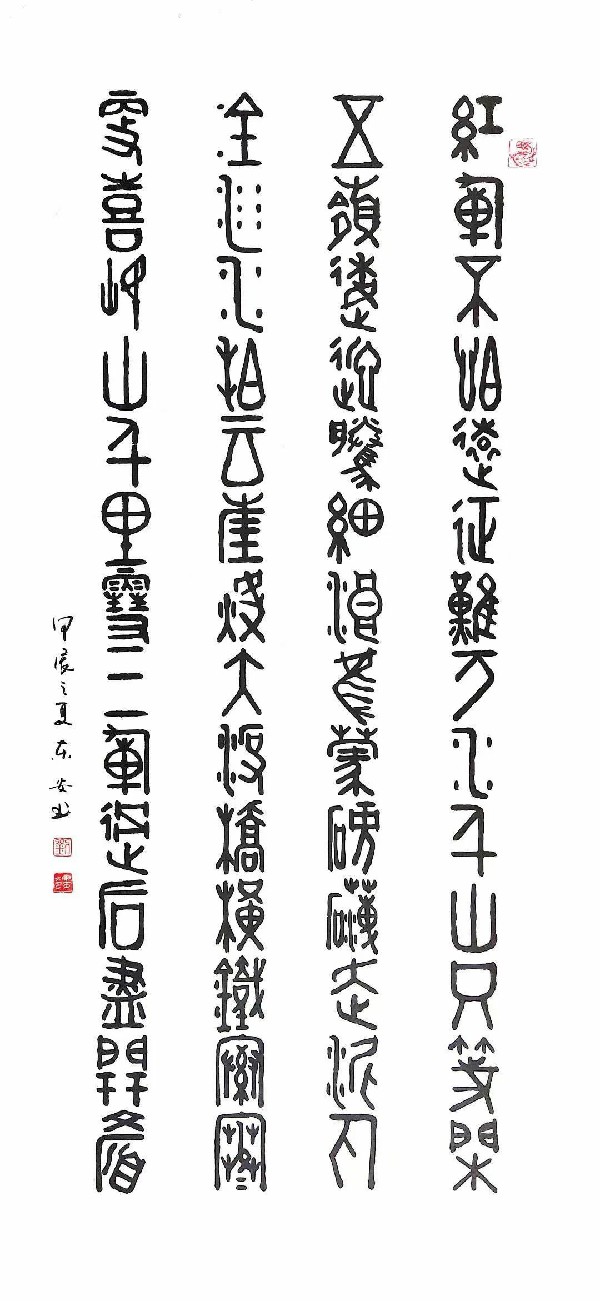 紅軍不怕遠征難万水千山只等閑
五嶺逶迤騰細浪烏蒙磅礴走泥丸
金沙水拍云崖煖大渡橋橫鐵索寒
更喜岷山千里雪三軍過后盡開顏
甲辰之夏东安书